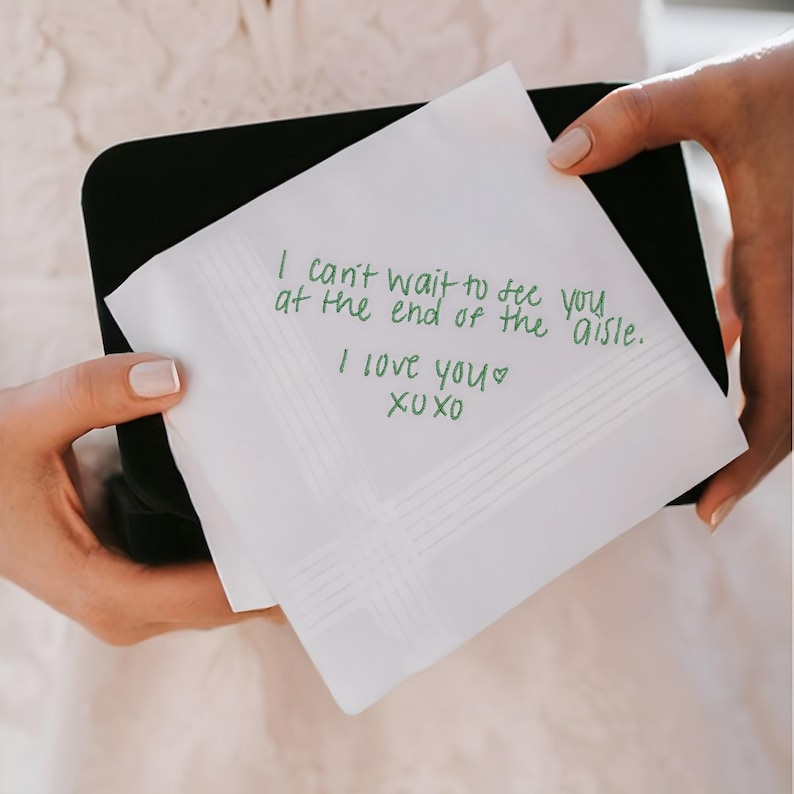 I can't wait to see you
at the end of the aisle.
I love you♡
xoxo